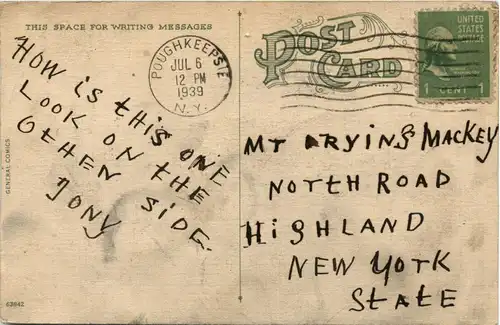 THIS SPACE FOR WRITING MESSAGES
HOW iS tHiS ONE
LOOK ON tHE
OtHEN SiDE.
TONY
GENERAL COMICS
63842
POUGHKEEPSIE
JUL 6
12 PM
1939
N.Y.
POST
CARD
UNITED
STATES
POSTAGE
1 CENT 1
MT IRYING MACKEY
NOTTH ROAD
HiGHLAND
NEW YORK
StAtE